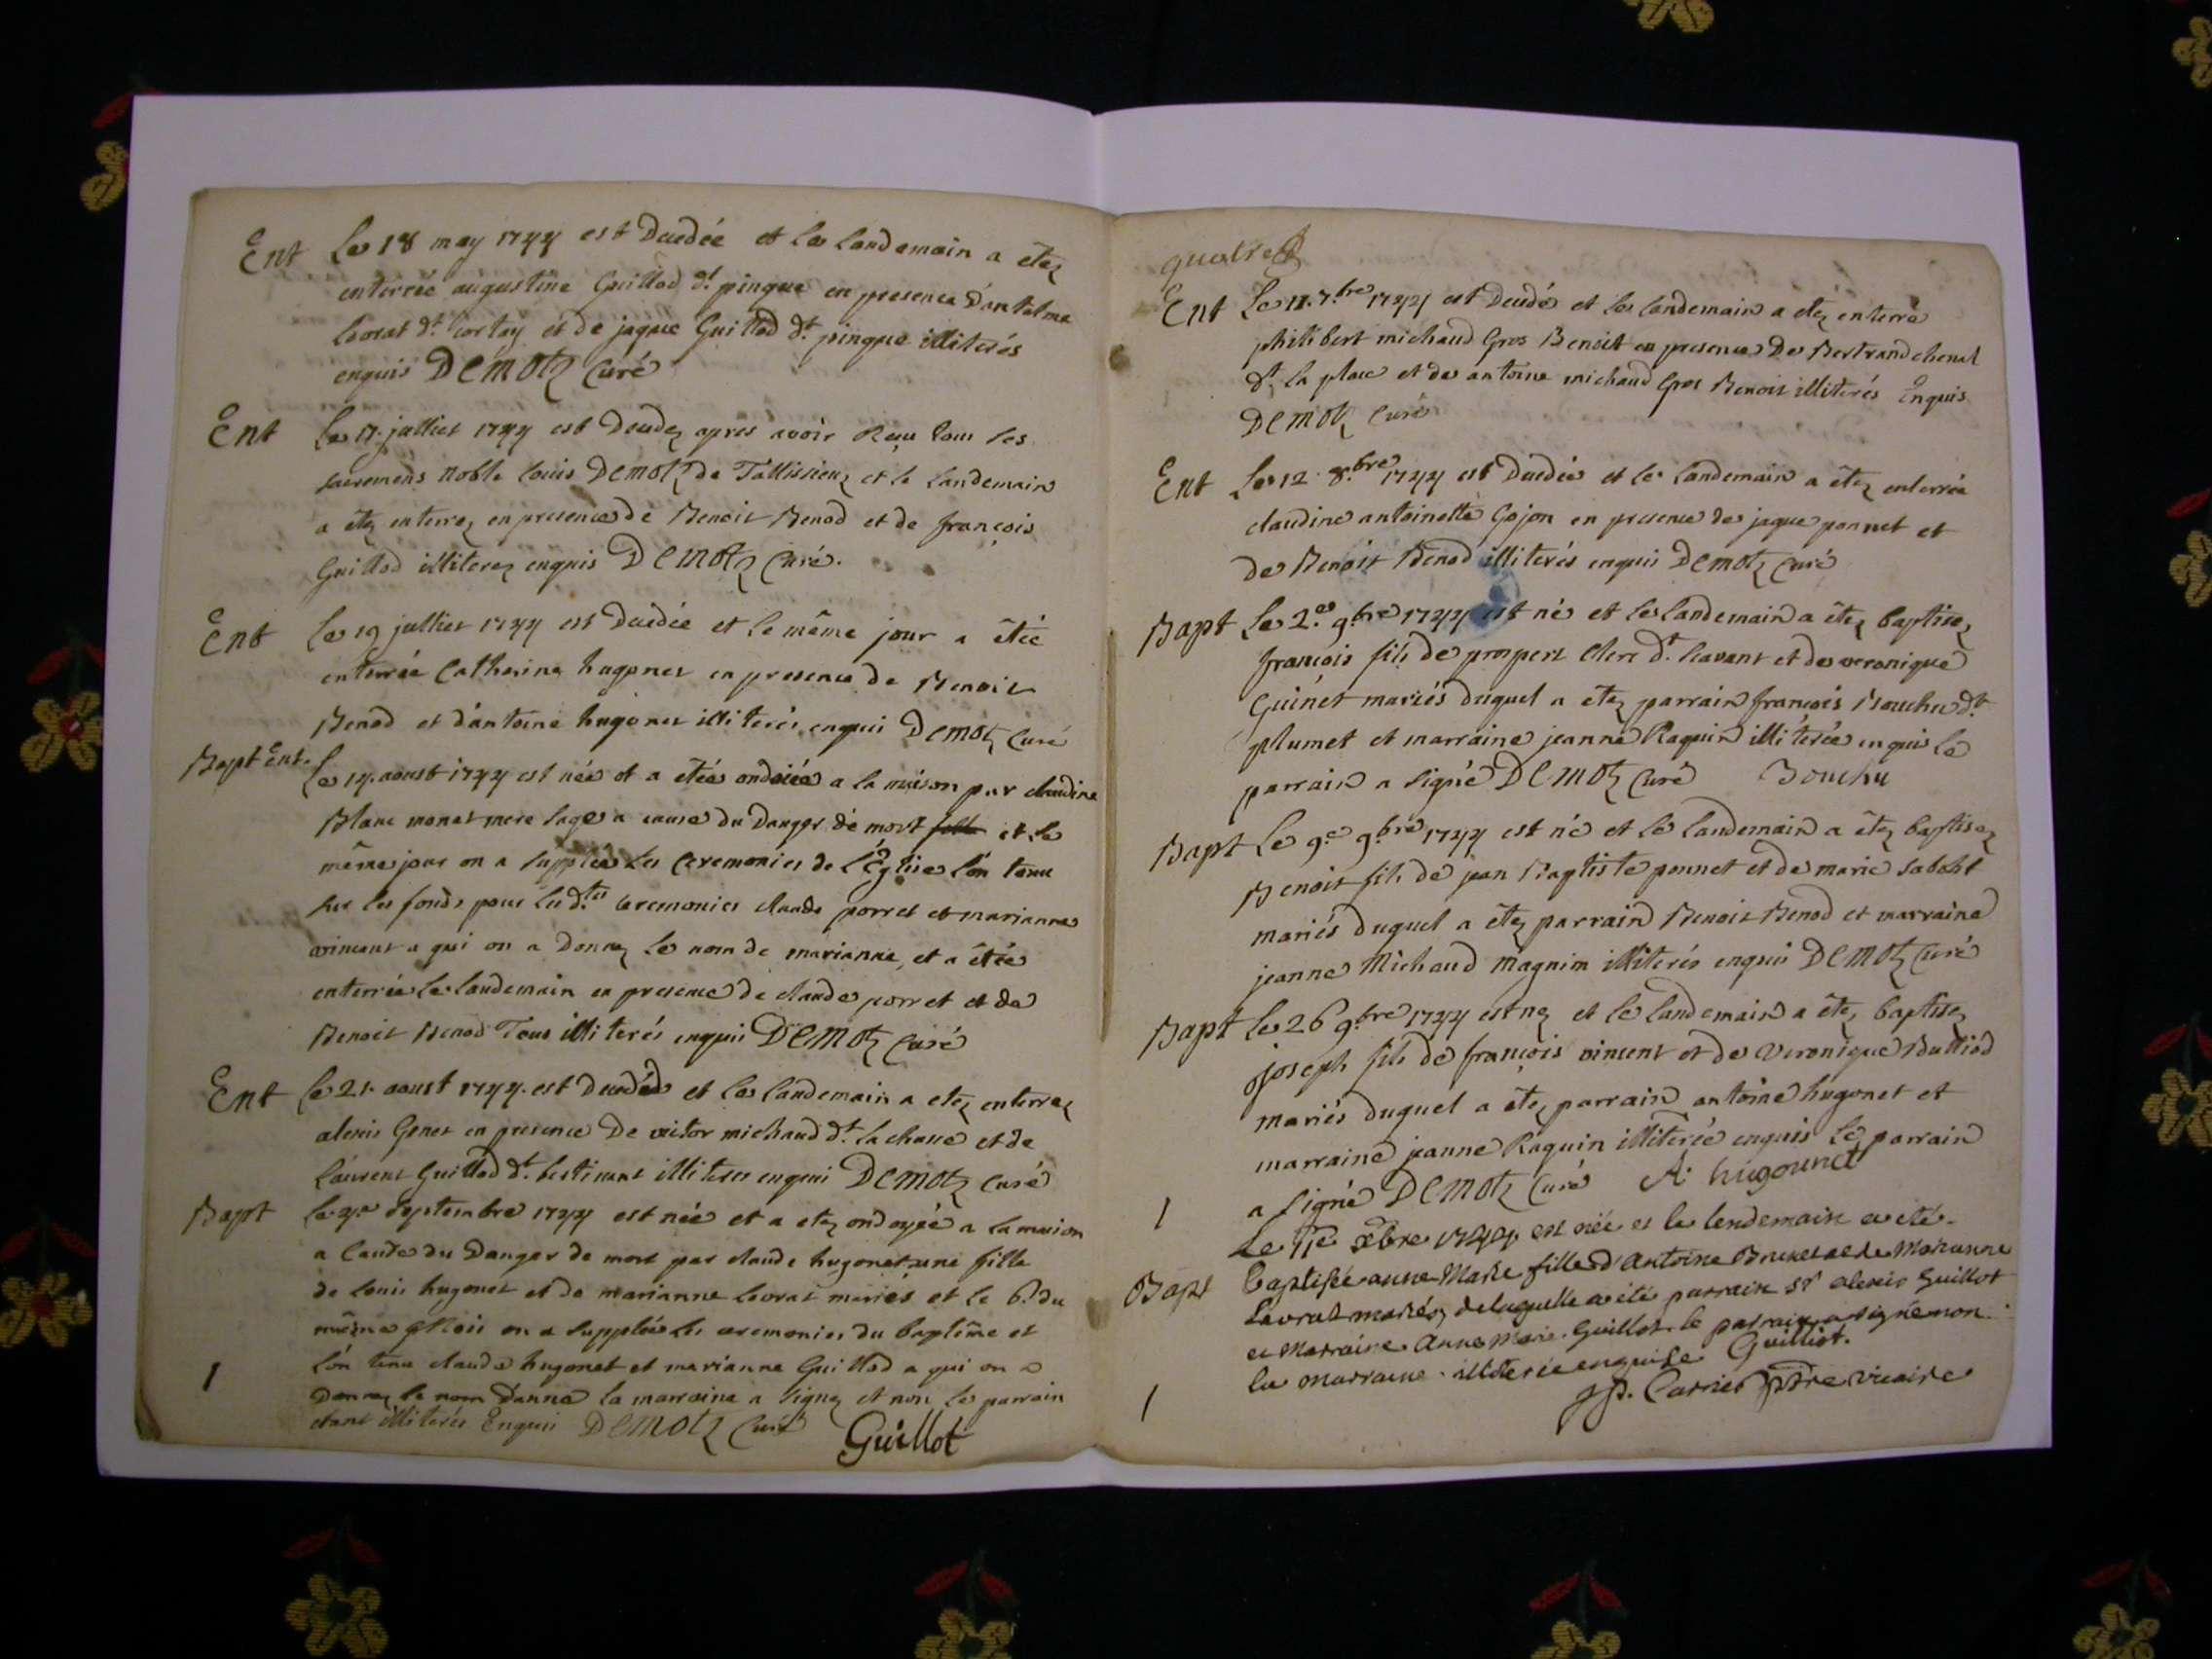 Ent Le 18 may 1744 est Decedée et le landemain a etez
enterrée augustine Guillod dt. pingue en presence d'antelme
levrat dt. cortay et de jaque Guillod dt. pingue illiterés
enquis DEMOTZ Curé
Ent Le 17. julliet 1744 est Decedez apres avoir Reçu tous les
sacremens noble louis DEMOTZ de Tallissieux et le landemain
a êtez enterrez en presence de Benoit Benod et de françois
Guillod illiterez enquis DEMOTZ Curé.
Ent Le 19 julliet 1744 est Decedée et le même jour a êtée
enterrée Catherine hugonet en presence de Benoit
Benod et d'antoine hugonet illiterés enquis DEMOTZ Curé
Bapt Ent. Le 14. aoust 1744 est née et a êtée ondoiée a la maison par claudine
Blanc monet mere sage a cause du Danger de mort et le
même jour on a supplée les Ceremonies de l'Eglise l'on tenu
sur les fonds pour lesdtes Ceremonies claude porret et marianne
vincent a qui on a Donnez le nom de marianne, et a êtée
enterrée le landemain en presence de claude porret et de
Benoit Benod Tous illiterés enquis DEMOTZ Curé
Ent Le 21. aoust 1744. est Decedé et le landemain a etez enterrez
alexis Genet en presence De victor michaud dt. la chasse et de
Laurent Guillod dt. illiterés enquis DEMOTZ Curé
Bapt Le 4e Septembre 1744 est née et a etez ondoyée a la maison
a Cause du Danger de mort par claude hugonet une fille
de louis hugonet et de marianne levrat mariés et le 6. du
même Mois on a supplée les ceremonies du baptême et
l'on tenu claude hugonet et marianne Guillod a qui on a
1
Donnez le nom Danne la marraine a signez et non le parrain
etant illiterés Enquis DEMOTZ Curé Guillot
quatre
Ent Le 11. 7.bre 1744 est Decedé et le landemain a etez enterré
philibert michaud Gros Benoit en presence De Bertrand chenal
dt. la place et de antoine michaud Gros Benoit illiterés Enquis
DEMOTZ Curé
Ent Le 12. 8.bre 1744 est Decedée et le landemain a êtez enterrée
claudine antoinette Gojon en presence de jaque ponnet et
de Benoit Benod illiterés enquis DEMOTZ Curé
Bapt Le 2.e 9bre 1744 est né et le landemain a êtez baptisez
francois fils de prospert Clerc dt. Savant et de veronique
Guinet mariés duquel a êtez parrain francois Bouchu dt.
plumet et marraine jeanne Raquin illiterée enquis le
parrain a signé DEMOTZ Curé Bouchu
Bapt Le 9e 9bre 1744 est né et le landemain a êtez baptisez
Benoit fils de jean Baptiste ponnet et de marie
mariés duquel a êtez parrain Benoit Benod et marraine
jeanne Michaud magnin illiterés enquis DEMOTZ Curé
Bapt Le 26 9bre 1744 est nez et le landemain a êtez baptisez
joseph fils de françois vincent et de veronique Bulliod
mariés duquel a êtez parrain antoine hugonet et
marraine jeanne Raquin illiterée enquis le parrain
a signé DEMOTZ Curé A. hugounet
1
Le 11e Xbre 1744 est née et le lendemain a eté
Bapt baptisée anne Marie fille d'Antoine et de Marianne
Lavrat mariés, delaquelle a eté parrain Sr alexis Guillot
et Marraine Anne Marie Guillot. le parrain a signé non
la marraine illiterée enquise Guilliot.
1
jp. Carrier ptre vicaire